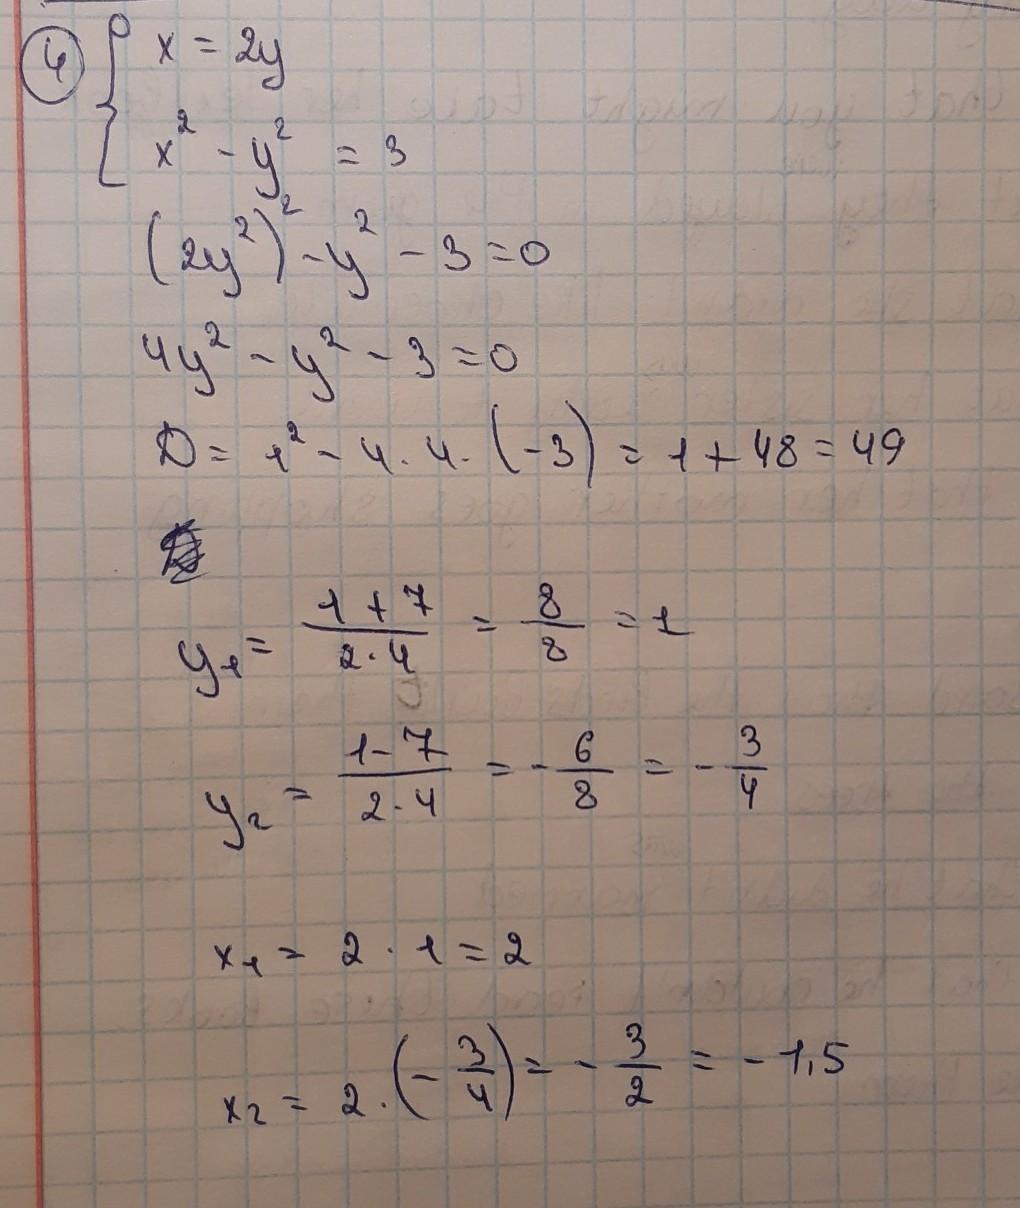 4 { x = 2y
x² - y² = 3
(2y²)² - y² - 3 = 0
4y² - y² - 3 = 0
D = 1² - 4 · 4 · (-3) = 1 + 48 = 49
y₁ = (1 + 7)/(2 · 4) = 8/8 = 1
y₂ = (1 - 7)/(2 · 4) = - 6/8 = - 3/4
x₁ = 2 · 1 = 2
x₂ = 2 · (- 3/4) = - 3/2 = - 1,5